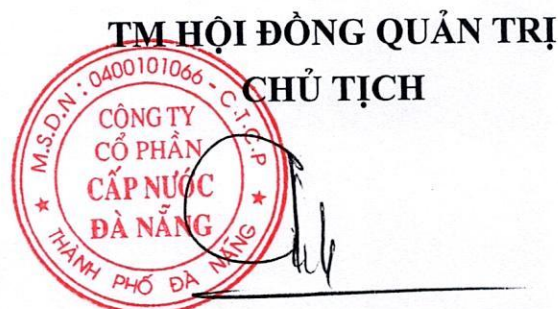 TM HỘI ĐỒNG QUẢN TRỊ
CHỦ TỊCH
M.S.D.N: 0400101066 - C.T.C.P
CÔNG TY
CỔ PHẦN
CẤP NƯỚC
ĐÀ NẴNG
THÀNH PHỐ ĐÀ NẴNG